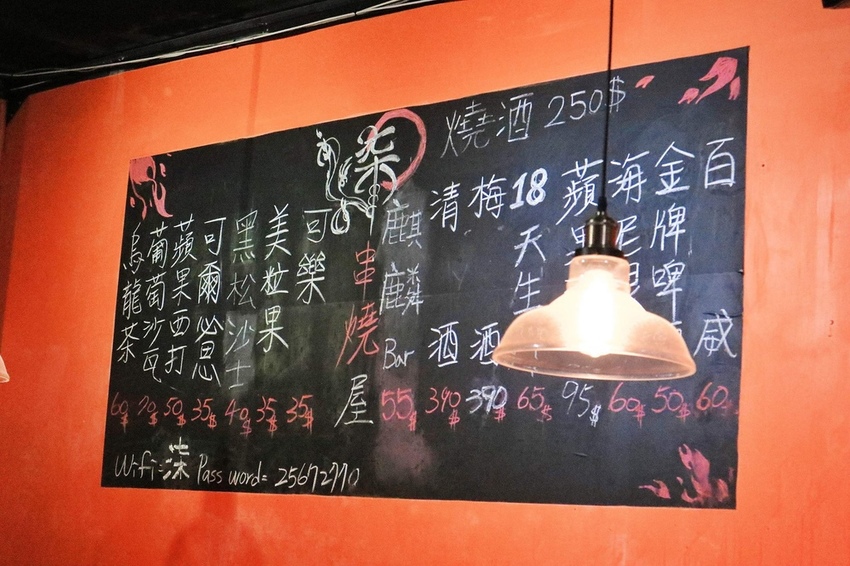 燒酒 250$
百威 60$
金牌啤 50$
海尼 60$
蘋果 95$
18天生 65$
梅酒 390$
清酒 390$
麒麟Bar 55$
柒串燒屋
可樂 35$
美粒果 35$
黑松沙士 40$
可爾必思 35$
蘋果西打 50$
葡萄沙瓦 70$
烏龍茶 60$
Wifi=柒 Pass word= 25672770